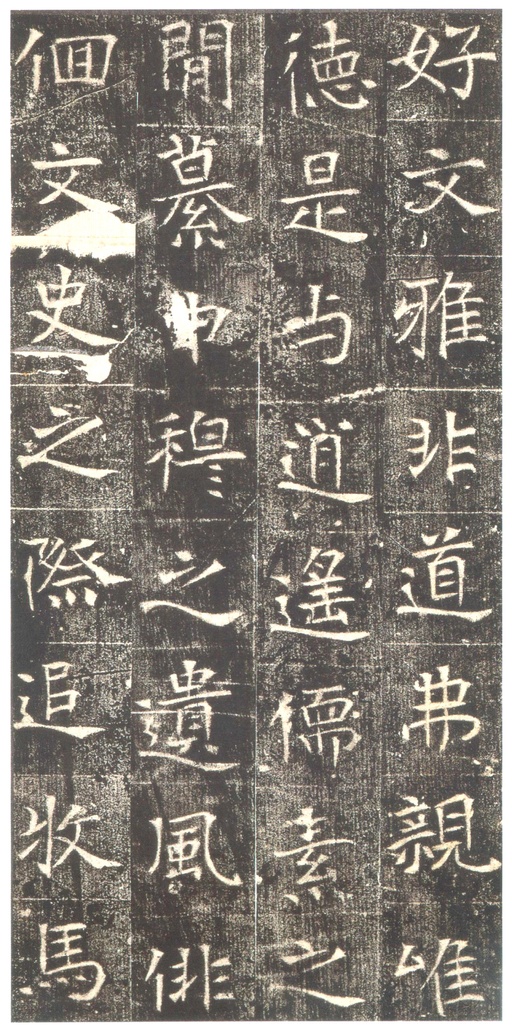 好文雅非道弗親唯
德是与逍遙儒素之
間綦申穆之遺風徘
佪文史之際追收馬